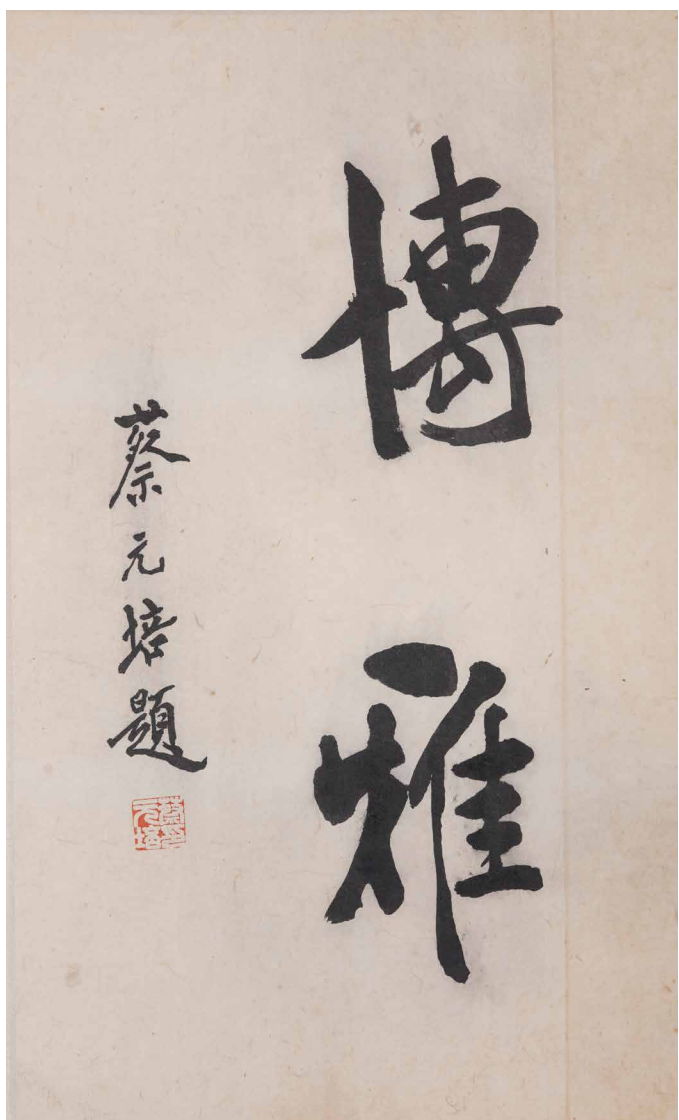 博雅
蔡元培題
蔡元培印